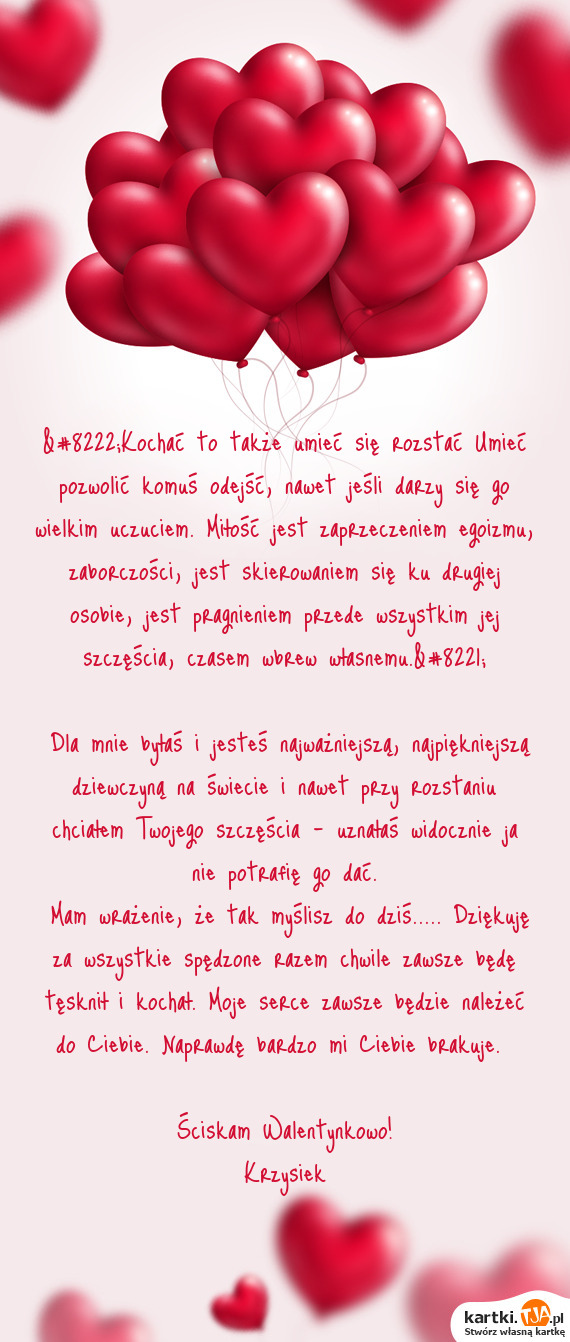 &#8222;Kochać to także umieć się rozstać Umieć
pozwolić komuś odejść, nawet jeśli darzy się go
wielkim uczuciem. Miłość jest zaprzeczeniem egoizmu,
zaborczości, jest skierowaniem się ku drugiej
osobie, jest pragnieniem przede wszystkim jej
szczęścia, czasem wbrew własnemu.&#8221;
Dla mnie byłaś i jesteś najważniejszą, najpiękniejszą
dziewczyną na świecie i nawet przy rozstaniu
chciałem Twojego szczęścia - uznałaś widocznie ja
nie potrafię go dać.
Mam wrażenie, że tak myślisz do dziś..... Dziękuję
za wszystkie spędzone razem chwile zawsze będę
tęsknił i kochał. Moje serce zawsze będzie należeć
do Ciebie. Naprawdę bardzo mi Ciebie brakuje.
Ściskam Walentynkowo!
Krzysiek
kartki.TJA.pl
Stwórz własną kartkę